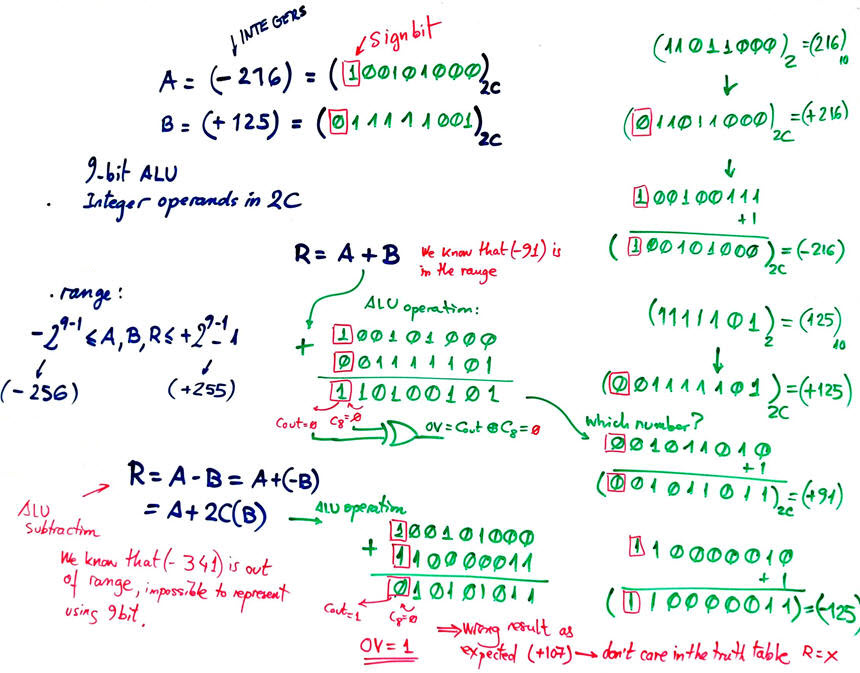 INTEGERS
Sign bit
A = (-216) = (100101000)2C
B = (+125) = (011111001)2C
9-bit ALU
. Integer operands in 2C
. range:
-2^9-1 ≤ A, B, R ≤ +2^9-1 -1
(-256) (+255)
R = A + B
We know that (-91) is
in the range
ALU operation:
100101000
+
001111101
110100101
Cout=0 C8=0
OV = Cout ⊕ C8 = 0
ALU
subtraction
R = A - B = A + (-B)
= A + 2C(B)
We know that (-341) is out
of range, impossible to represent
using 9bit.
ALU operation
100101000
+ 110000011
010101011
Cout=1 C8=0
OV = 1
⇒ wrong result as
expected (+107) → don't care in the truth table R=x
(11011000)2 = (216)10
(011011000)2C = (+216)
100100111
+1
(100101000)2C = (-216)
(1111101)2 = (125)10
(001111101)2C = (+125)
Which number?
001011010
+1
(001011011)2C = (+91)
110000010
+1
(110000011) = (-125)